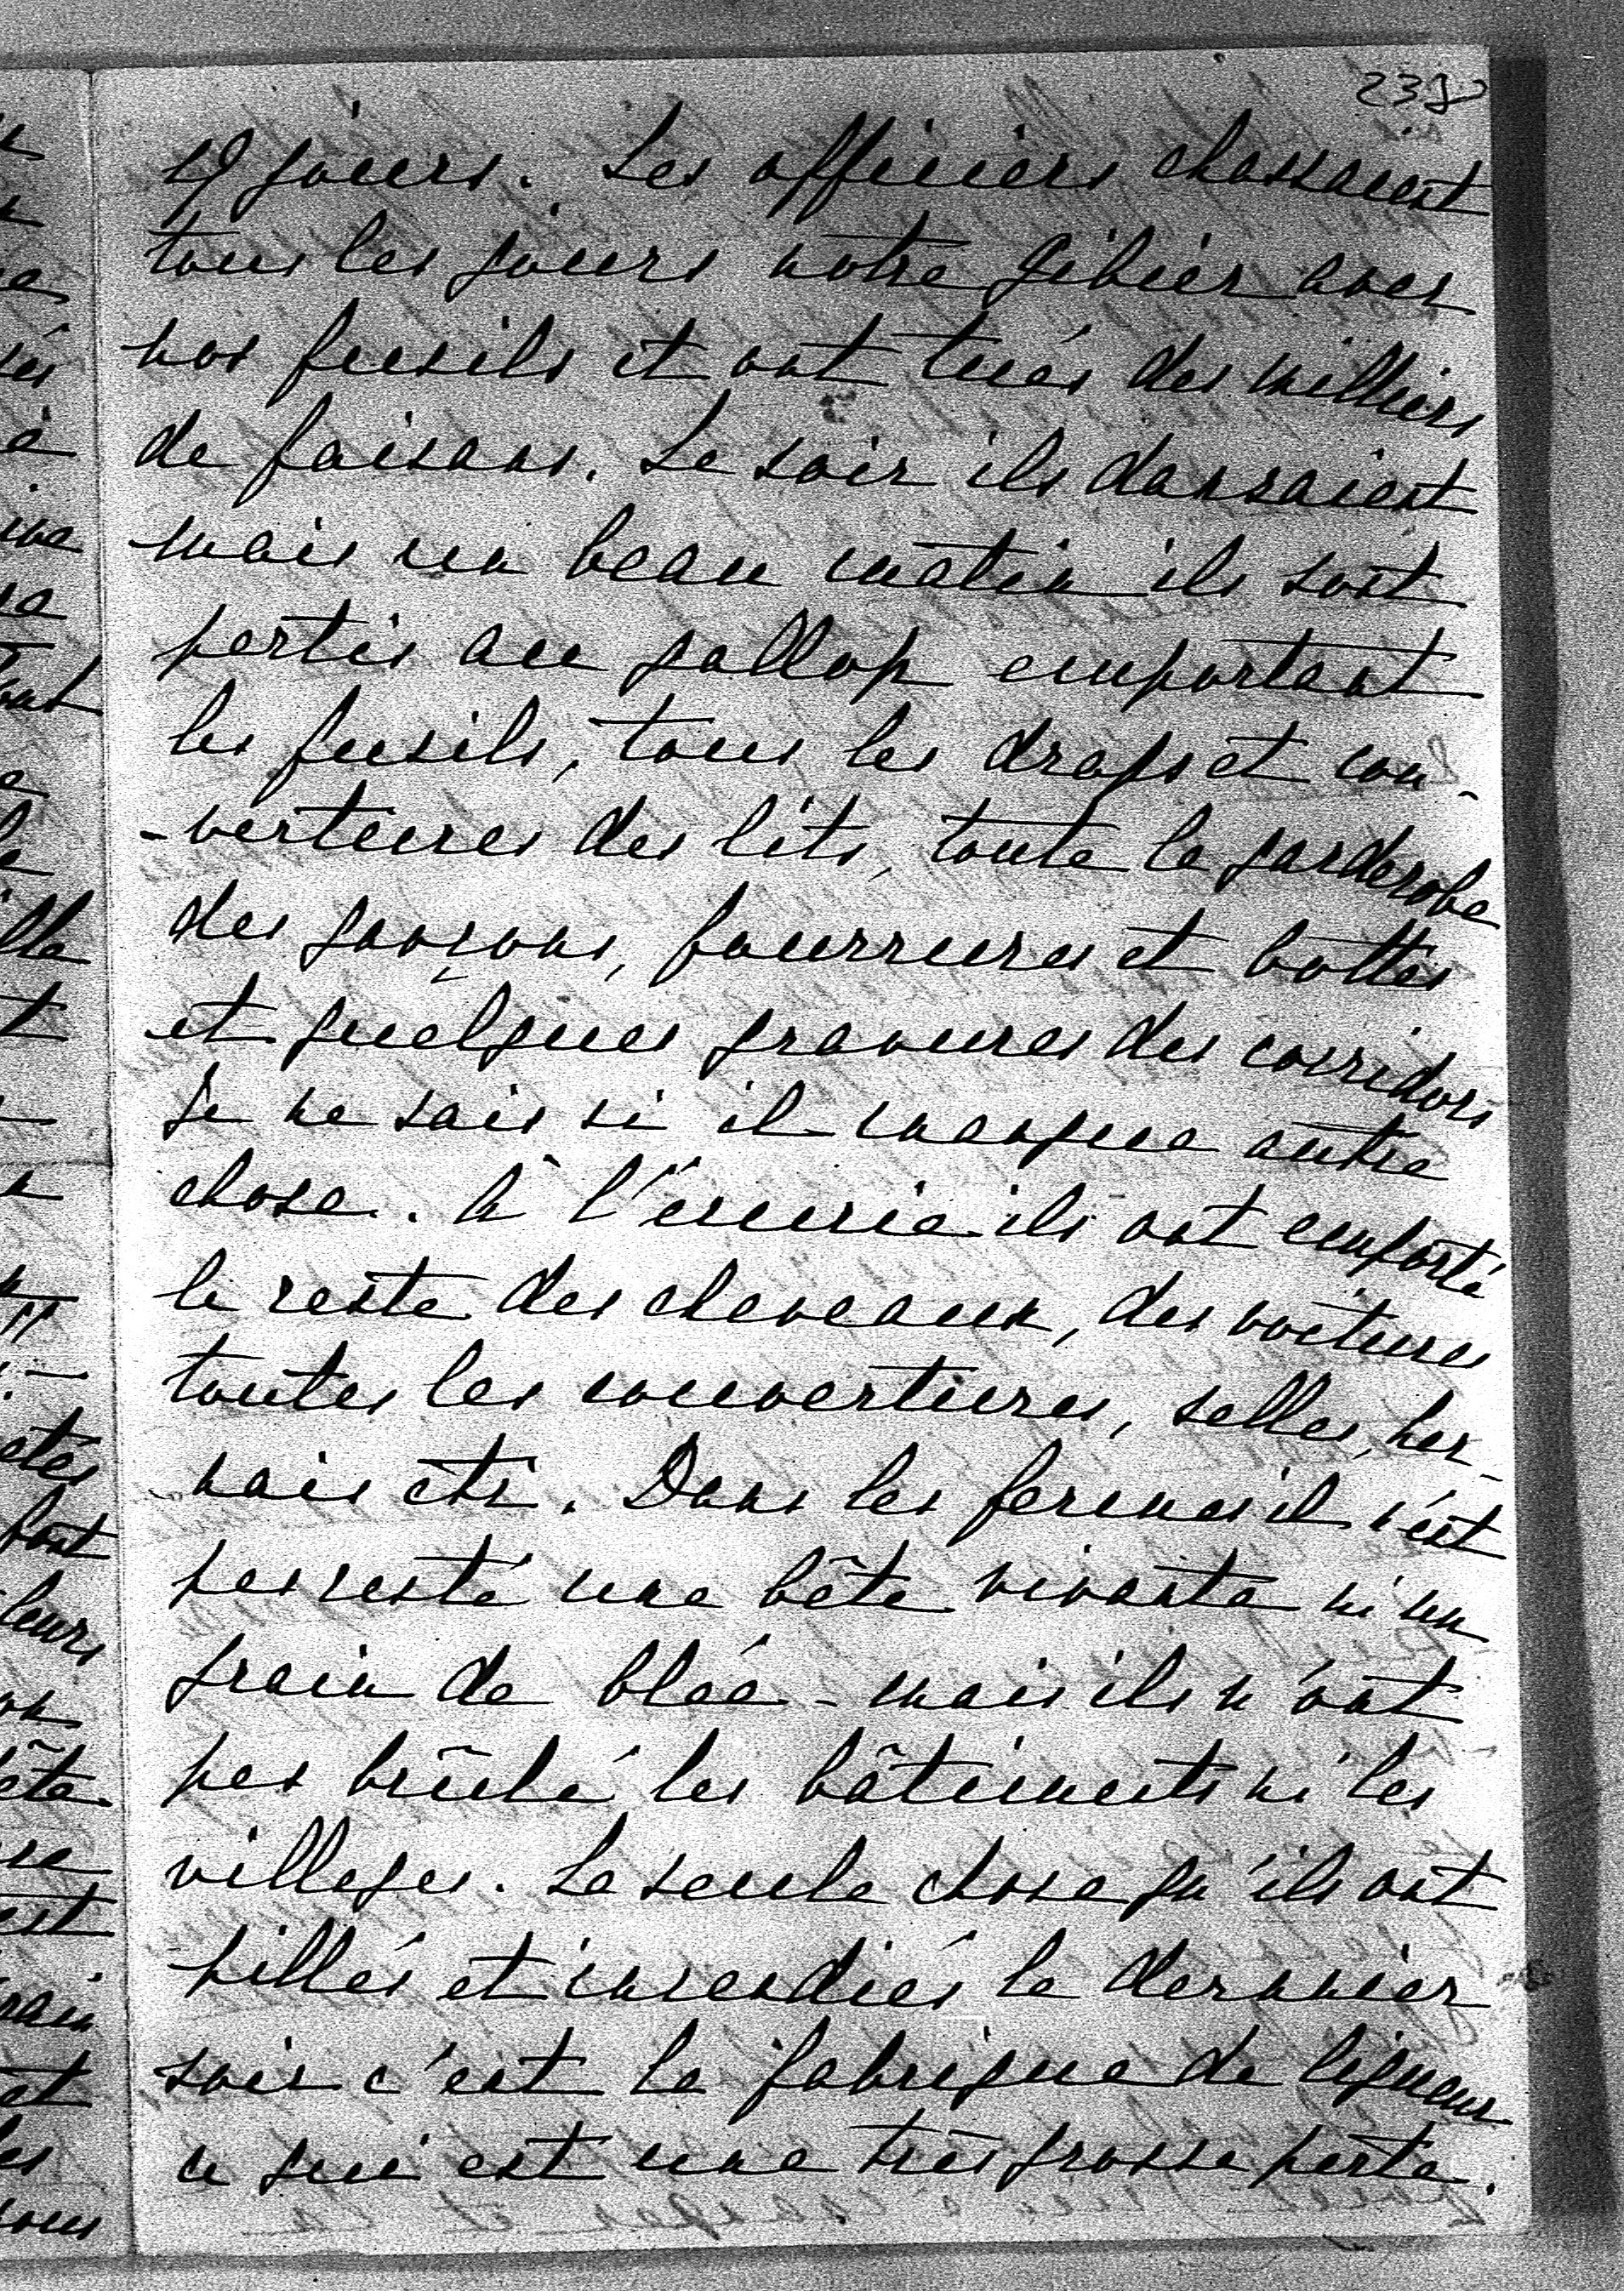 238
19 jours. Les officiers chassaient
tous les jours notre gibier avec
nos fusils et ont tués des milliers
de faisans. Le soir ils dansaient
mais un beau matin ils sont
partis au gallop emportant
les fusils, tous les draps et cou-
-vertures des lits, toute la garderobe
des garçons, fourrures et bottes
et quelques gravures des corridors
Je ne sais si il manque autre
chose. A l'écurie ils ont emporté
le reste des cheveaux, des voitures
toutes les couvertures, selles, har-
nais etc. Dans les fermes il n'est
pas resté une bête vivante ni un
grain de blée - mais ils n'ont
pas brûlé les bâtiments ni les
villages. La seule chose qu'ils ont
pillés et incendiés le dernier
soir c'est la fabrique de liqueur
ce qui est une très grosse perte.